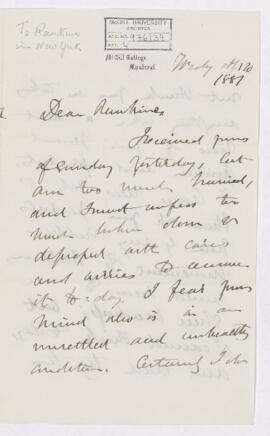 To Rankine
in New York
McGILL UNIVERSITY
ARCHIVES
ACC. NO.
REF.
McGill College,
Montreal.
1887
Dear Rankine
Received yours
of Sunday yesterday, but
am too much hurried,
and I must confess too
much broken down &
depressed with cares
and anxieties to answer
it to-day. I fear your
mind also is in an
unsettled and unhealthy
condition. Certainly I do